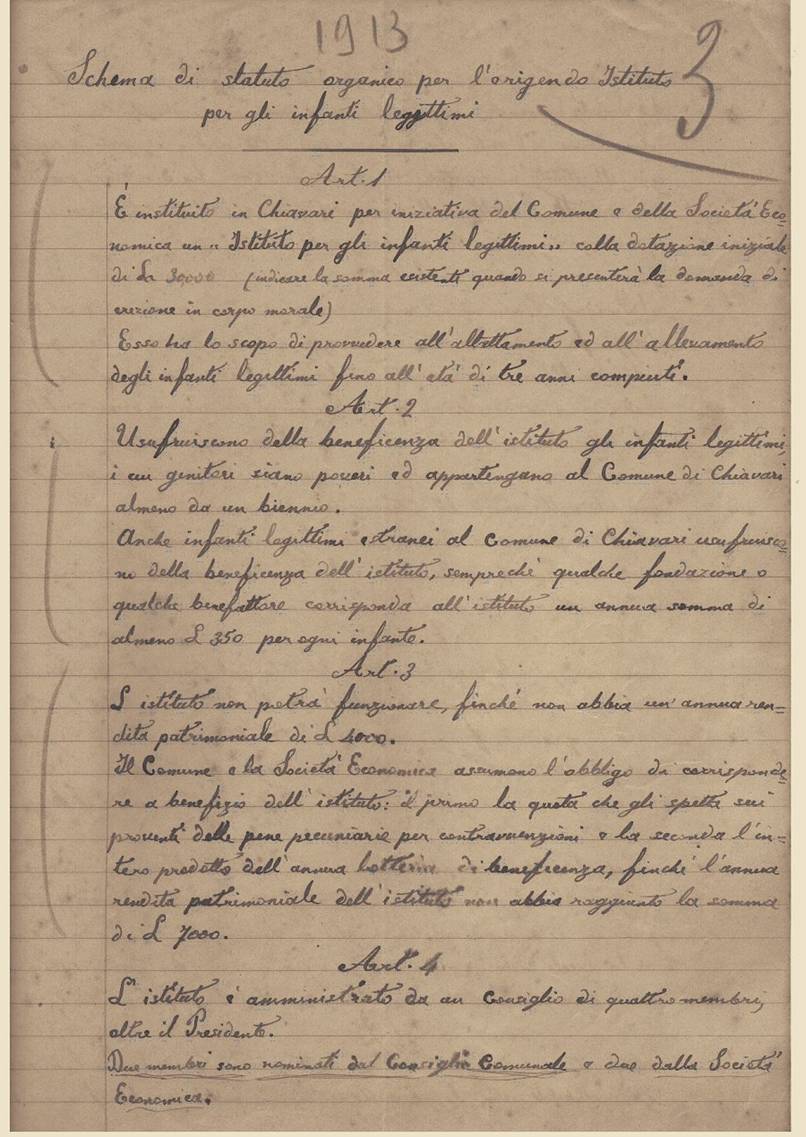 1913
3
Schema di statuto organico per l'erigendo Istituto
per gli infanti legittimi
Art. 1
È instituito in Chiavari per iniziativa del Comune e della Società Eco=
nomica un „ Istituto per gli infanti legittimi „ colla dotazione iniziale
di L. 30000 (indicare la somma esistente quando si presenterà la domanda di
erezione in corpo morale)
Esso ha lo scopo di provvedere all'allattamento ed all'allevamento
degli infanti legittimi fino all'età di tre anni compiuti.
Art. 2
Usufruiscono della beneficenza dell'istituto gli infanti legittimi,
i cui genitori siano poveri ed appartengano al Comune di Chiavari
almeno da un biennio.
Anche infanti legittimi estranei al Comune di Chiavari usufruisco=
no della beneficenza dell'istituto, sempreché qualche fondazione o
qualche benefattore corrisponda all'istituto un annua somma di
almeno L 350 per ogni infante.
Art. 3
L'istituto non potrà funzionare, finché non abbia un'annua ren=
dita patrimoniale di L 4000.
Il Comune e la Società Economica assumono l'obbligo di corrisponde=
re a benefizio dell'istituto: il primo la quota che gli spetta sui
proventi delle pene pecuniarie per contravvenzioni e la seconda l'in=
tero prodotto dell'annua lotteria di beneficenza, finché l'annua
rendita patrimoniale dell'istituto non abbia raggiunto la somma
di L 7000.
Art. 4
L'istituto è amministrato da un Consiglio di quattro membri,
oltre il Presidente.
Due membri sono nominati dal Consiglio Comunale e due dalla Società
Economica.